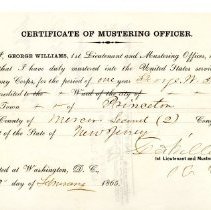 CERTIFICATE OF MUSTERING OFFICER.
I, GEORGE WILLIAMS, 1st Lieutenant and Mustering Officer,
that I have duly mustered into the United States
Corps, for the period of one year George W.
credited to the Ward of the city of
Town of Princeton
County of Mercer Second (2) Con
of the State of New Jersey
1st Lieutenant and Muste
at Washington, D. C.,
day of February 1865.